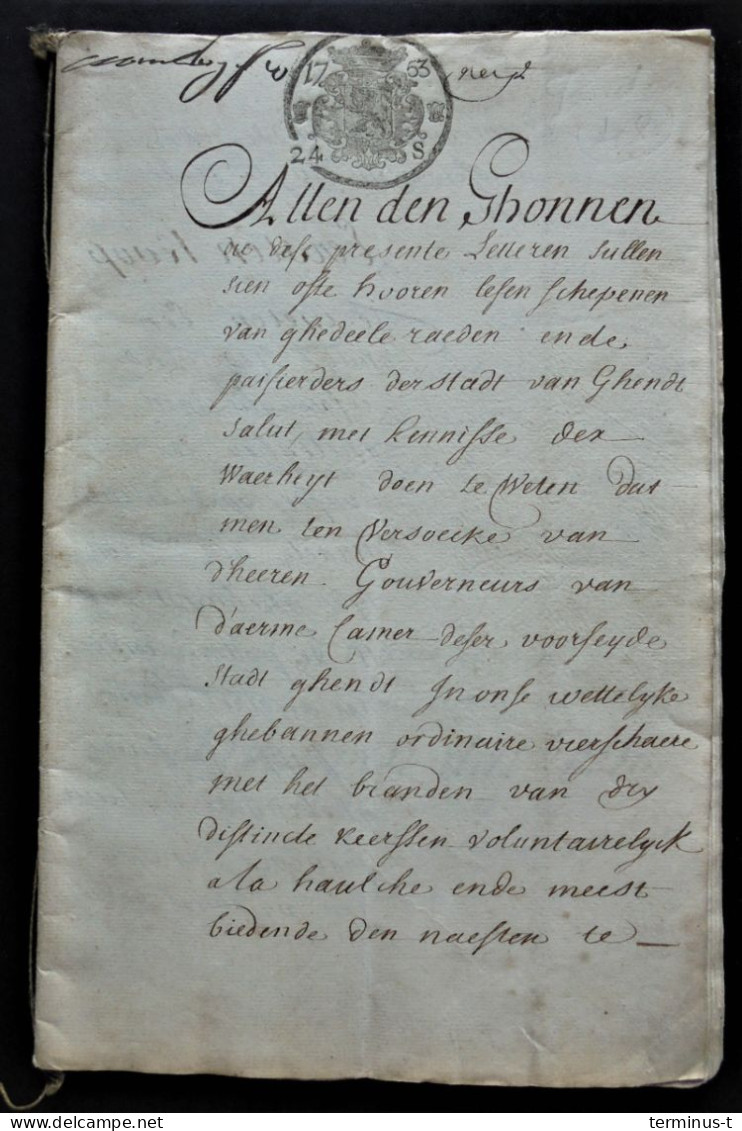 17 53
24 S
Allen den Ghonnen
die dese presente Letteren sullen
sien ofte hooren lesen schepenen
van ghedeele raeden ende
paisierders der stadt van Ghendt
salut, met kennisse der
Waerheyt doen te Weten dat
men ten Versoecke van
d'heeren Gouverneurs van
d'aerme Camer deser voorseyde
stadt ghendt In onse wettelyke
ghebannen ordinaire vierschaere
met het branden van dry
distincte keerssen voluntairelyck
a la haulche ende meest
biedende den naesten te
terminus-t